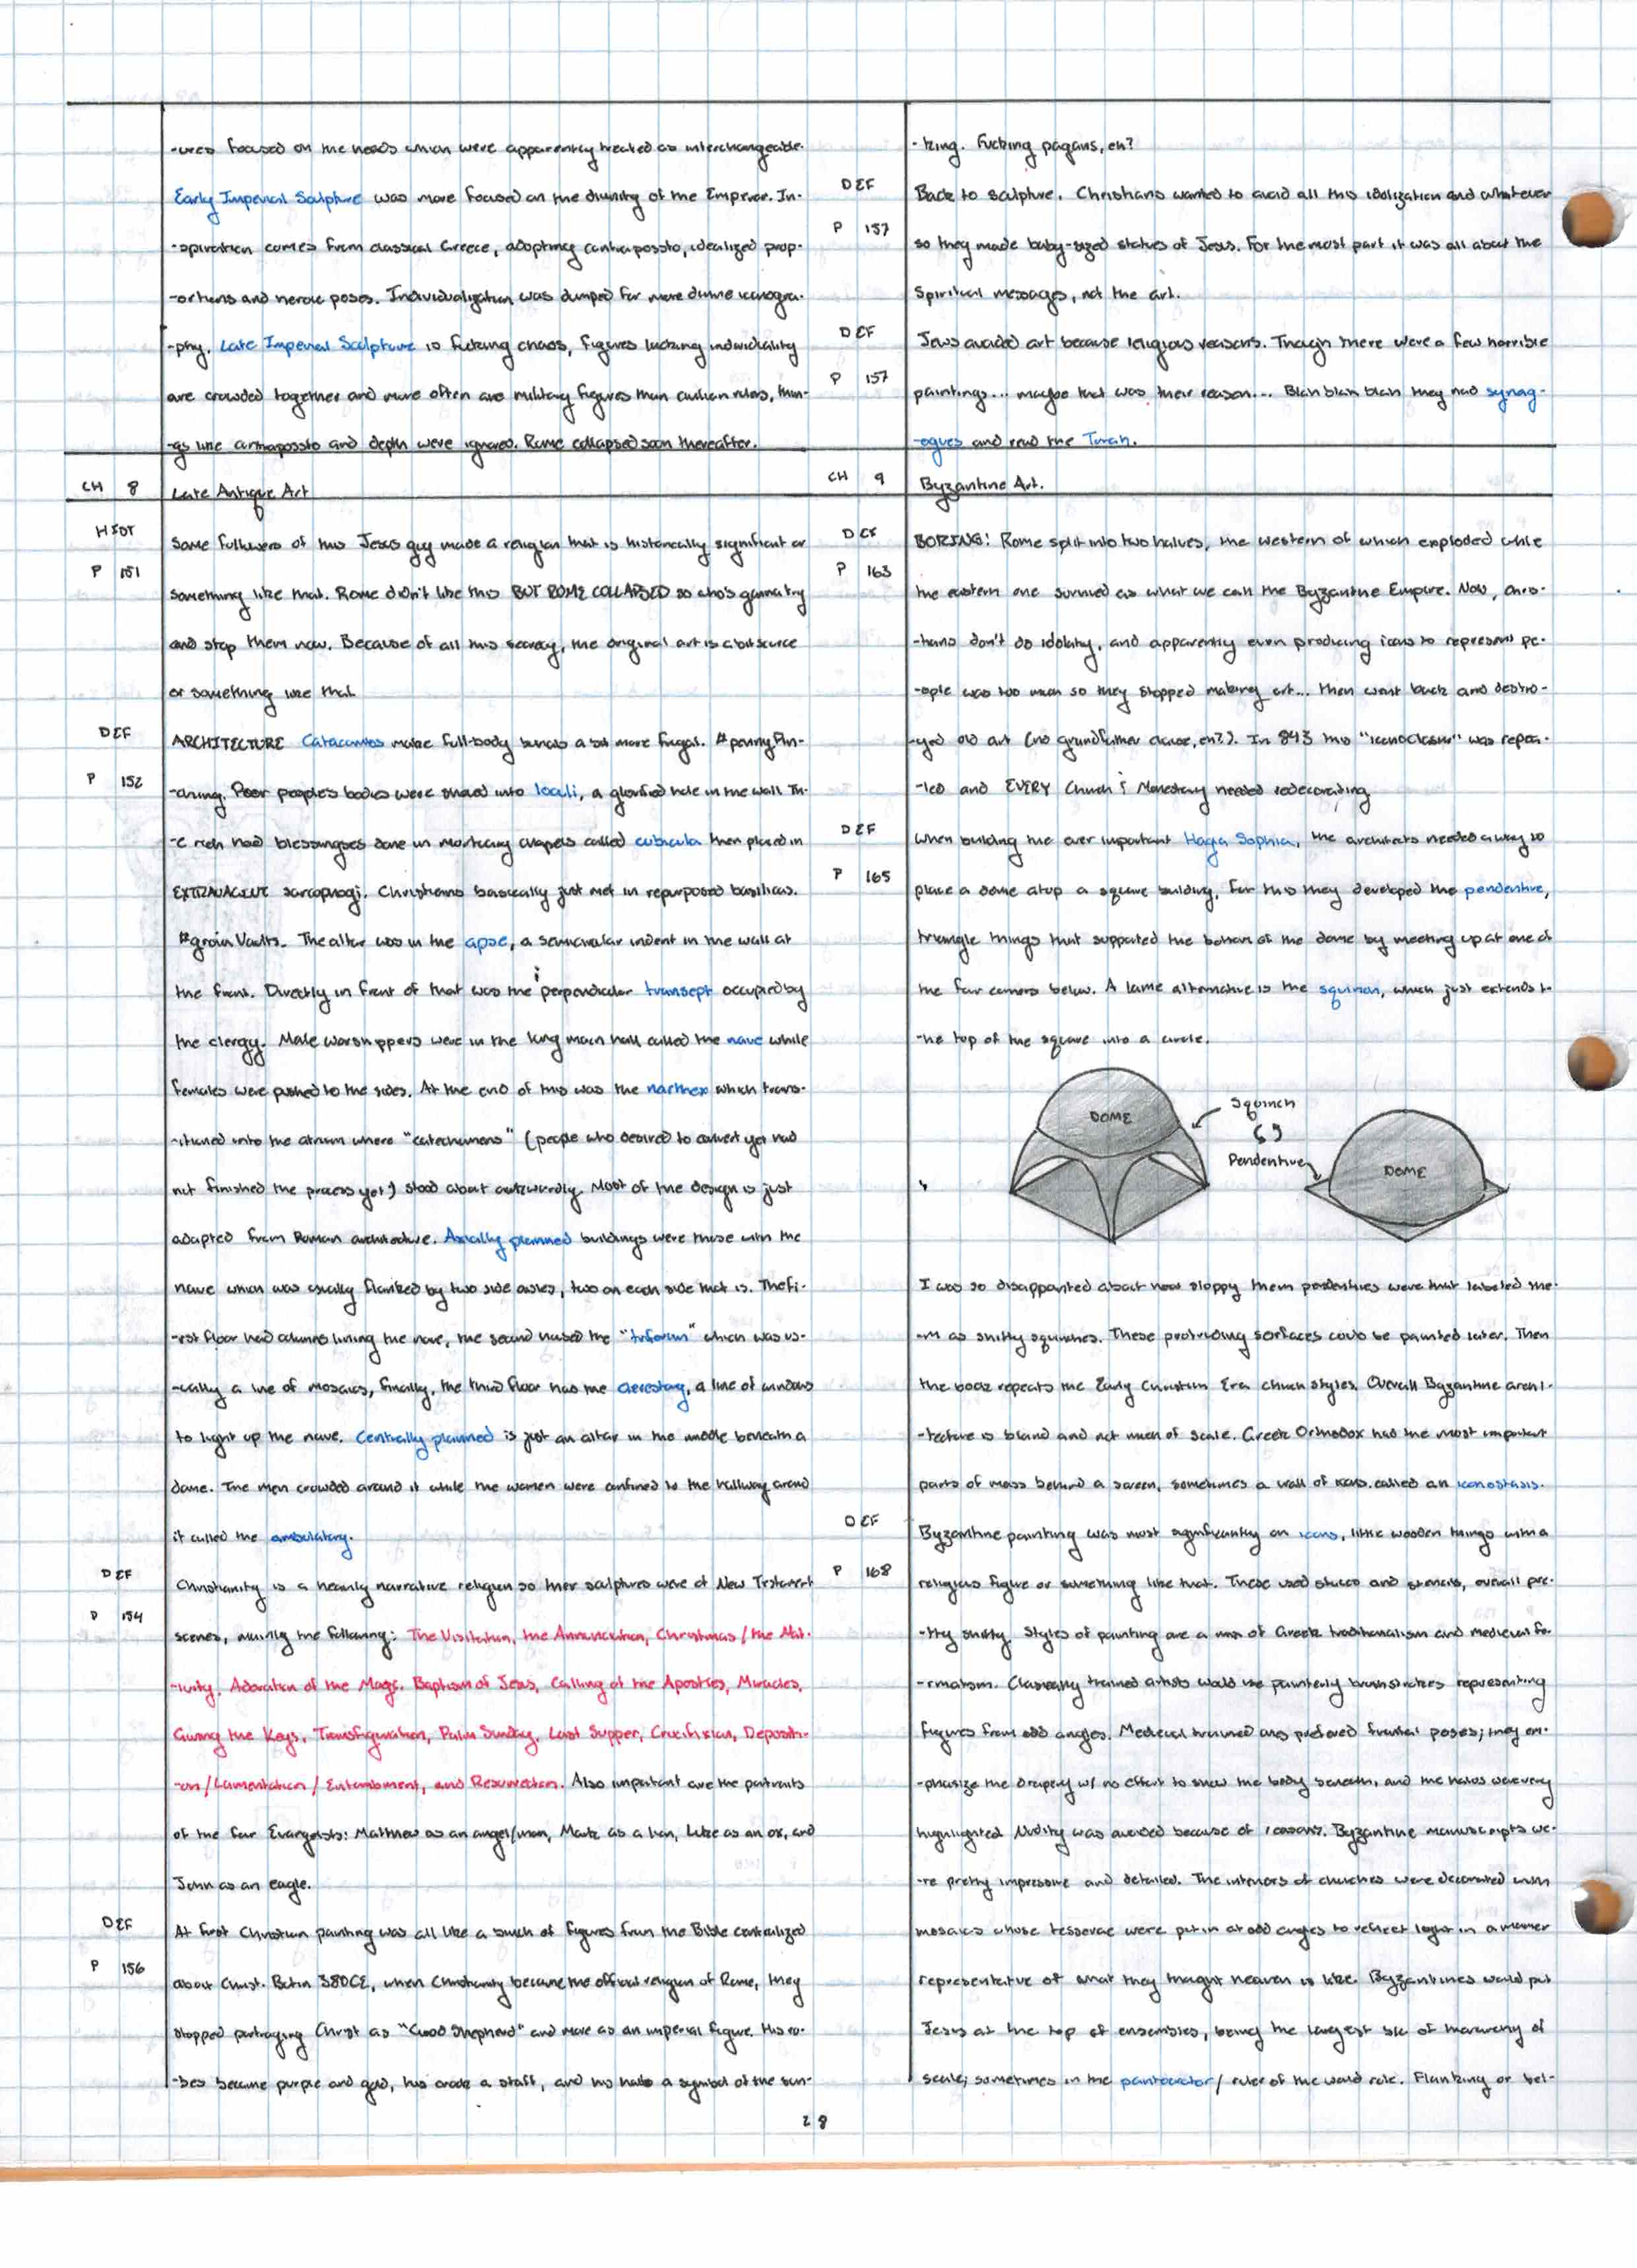 -ures focused on the heads which were apparently treated as interchangeable.
Early Imperial Sculpture was more focused on the divinity of the Emperor. In-
-spiration comes from classical Greece, adopting contrapossto, idealized prop-
-ortions and heroic poses. Individualization was dumped for more divine iconogra-
-phy. Late Imperial Sculpture is fucking chaos, figures lacking individuality
are crowded together and more often are military figures than civilian rulers, thin-
-gs like contrapossto and depth were ignored. Rome collapsed soon thereafter.
CH 8 Late Antique Art
HIST
P 151
Some followers of this Jesus guy made a religion that is historically significant or
something like that. Rome didn't like this BUT ROME COLLAPSED so who's gonna try
and stop them now. Because of all this secrecy, the original art is a bit scarce
or something like that
DEF
P 152
ARCHITECTURE Catacombs make full-body burials a bit more frugal. #pennyPin-
-ching. Poor people's bodies were shoved into loculi, a glorified hole in the wall. Th-
-e rich had blessingses done in mortuary chapels called cubicula then placed in
sarcophagi. Christians basically just met in repurposed basilicas.
#groinVaults. The altar was in the apse, a semicircular indent in the wall at
the front. Directly in front of that was the perpendicular transept occupied by
the clergy. Male worshippers were in the long main hall called the nave while
females were pushed to the sides. At the end of this was the narthex which trans-
-itioned into the atrium where "catechumens" (people who desired to convert yet had
not finished the process yet) stood about awkwardly. Most of the design is just
adapted from Roman architecture. Axially planned buildings were those with the
nave which was usually flanked by two side aisles, two on each side that is. The fi-
-rst floor had columns lining the nave, the second housed the "triforium" which was us-
-ually a line of mosaics, finally, the third floor has the clerestory, a line of windows
to light up the nave. Centrally planned is just an altar in the middle beneath a
dome. The men crowded around it while the women were confined to the hallway around
it called the ambulatory.
DEF
P 154
Christianity is a heavily narrative religion so their sculptures were of New Testament
scenes, mainly the following: The Visitation, the Annunciation, Christmas / the Nat-
-ivity, Adoration of the Magi, Baptism of Jesus, Calling of the Apostles, Miracles,
Giving the Keys, Transfiguration, Palm Sunday, Last Supper, Crucifixion, Depositi-
-on / Lamentation / Entombment, and Resurrection. Also important are the portraits
of the four Evangelists: Matthew as an angel/man, Mark as a lion, Luke as an ox, and
John as an eagle.
DEF
P 156
At first Christian painting was all like a bunch of figures from the Bible centralized
about Christ. But in 380CE, when Christianity became the official religion of Rome, they
stopped portraying Christ as "Good Shepherd" and more as an imperial figure. His ro-
-bes became purple and gold, his crook a staff, and his halo a symbol of the sun-
-king. Fucking pagans, eh?
DEF
P 157
Back to sculpture. Christians wanted to avoid all this idolization and whatever
so they made baby-sized statues of Jesus. For the most part it was all about the
spiritual messages, not the art.
DEF
P 157
Jews avoided art because religious reasons. Though there were a few horrible
paintings... maybe that was their reason... Blah blah blah they had synag-
-ogues and read the Torah.
CH 9 Byzantine Art.
DEF
P 163
BORING: Rome split into two halves, the western of which exploded while
the eastern one survived as what we call the Byzantine Empire. Now, chris-
-tians don't do idolatry, and apparently even producing icons to represent pe-
-ople was too much so they stopped making art... then went back and destro-
-yed old art (no grandfather clause, eh?). In 843 this "iconoclasm" was repea-
-led and EVERY Church & Monestary needed redecorating
DEF
P 165
When building the ever important Hagia Sophia, the architects needed a way to
place a dome atop a square building. For this they developed the pendentive,
triangle things that supported the bottom of the dome by meeting up at one of
the four corners below. A lame alternative is the squinch, which just extends t-
-he top of the square into a circle.
DOME
Squinch
Pendentive
DOME
I was so disappointed about how sloppy them pendentives were that labeled the-
-m as shitty squinches. These protruding surfaces could be painted later. Then
the book repeats the Early Christian Era church styles. Overall Byzantine archi-
-tecture is bland and not much of scale. Greek Orthodox had the most important
parts of mass behind a screen, sometimes a wall of icons called an iconostasis.
DEF
P 168
Byzantine painting was most significantly on icons, little wooden things with a
religious figure or something like that. These used stucco and stencils, overall pre-
-tty shitty. Styles of painting are a mix of Greek traditionalism and medieval fo-
-rmalism. Classically trained artists would use painterly brushstrokes representing
figures from odd angles. Medieval trained ones prefered frontal poses; they em-
-phasize the drapery w/ no effort to show the body beneath, and the halos were very
highlighted. Nudity was avoided because of reasons. Byzantine manuscripts we-
-re pretty impressive and detailed. The interiors of churches were decorated with
mosaics whose tesserae were put in at odd angles to reflect light in a manner
representative of what they thought heaven is like. Byzantines would put
Jesus at the top of ensembles, being the largest of hierarchy of
scale; sometimes in the pantocrator / ruler of the world role. Flanking or bel-
28